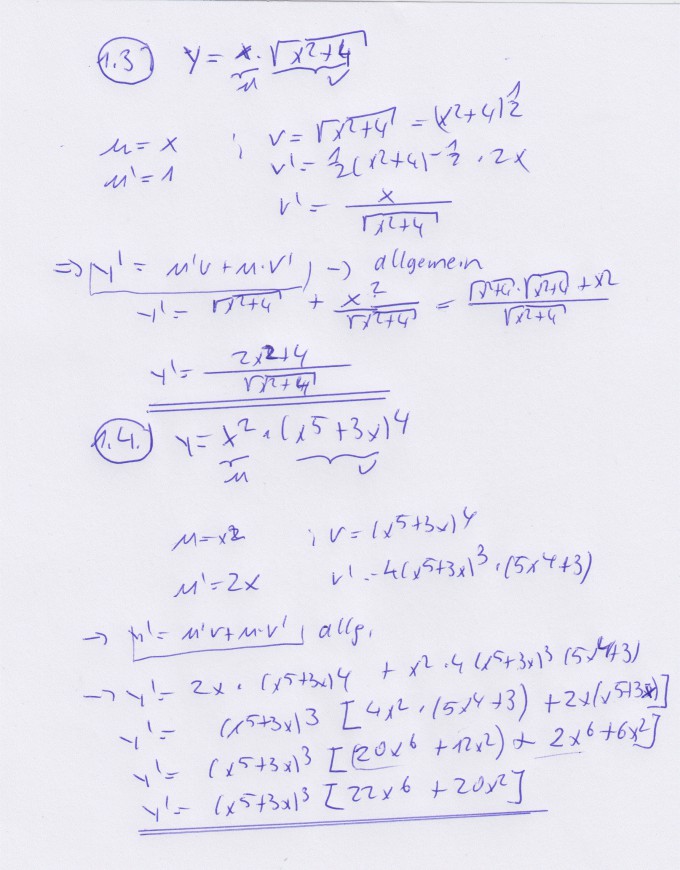 1.3 y = x · √(x²+4)
u v
u = x ; v = √(x²+4) = (x²+4)^½
u' = 1 v' = ½(x²+4)^-½ · 2x
v' = x / √(x²+4)
=> y' = u'v + u·v' , -> allgemein
y' = √(x²+4) + x² / √(x²+4) = (√(x²+4) · √(x²+4) + x²) / √(x²+4)
y' = (2x²+4) / √(x²+4)
1.4. y = x² · (x⁵+3x)⁴
u v
u = x² ; v = (x⁵+3x)⁴
u' = 2x v' = 4(x⁵+3x)³ · (5x⁴+3)
-> y' = u'v + u·v' , allg.
-> y' = 2x · (x⁵+3x)⁴ + x² · 4 (x⁵+3x)³ (5x⁴+3)
y' = (x⁵+3x)³ [4x² · (5x⁴+3) + 2x(x⁵+3x)]
y' = (x⁵+3x)³ [(20x⁶ + 12x²) + 2x⁶+6x²]
y' = (x⁵+3x)³ [22x⁶ + 20x²]